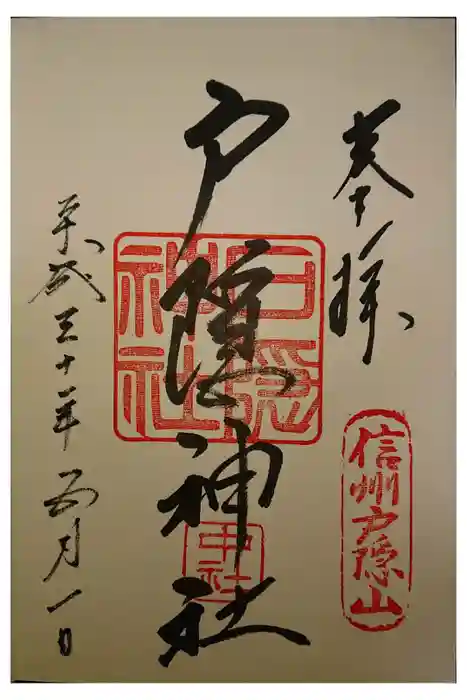 奉拝
信州戸隠山
戸隠神社
戸隠
神社
中社
平成三十一年四月一日